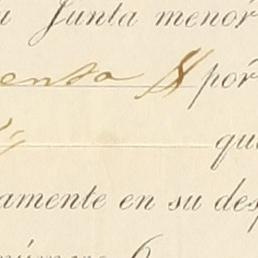 Junta menor
enta pór
que
amente en su des
número 6